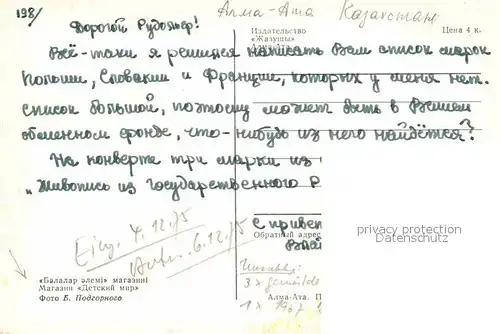 198/
Дорогой Рудольф!
Алма-Ата Казахстан
Издательство
«Жазушы»
Цена 4 к.
Всё-таки я решился написать Вам список марок
Польши, Словакии и Франции, которых у меня нет.
список большой, поэтому может быть в Вашем
обменном фонде, что-нибудь из него найдётся?
На конверте три марки из
„Живопись из государственного Р
С привет
Обратный адрес
privacy protection
Datenschutz
Eing. 4.12.75
Antw. 6.12.75
«Балалар әлемі» магазині
Магазин «Детский мир»
Фото Б. Подгорного
Алма-Ата. П
3 x
1 x 1967